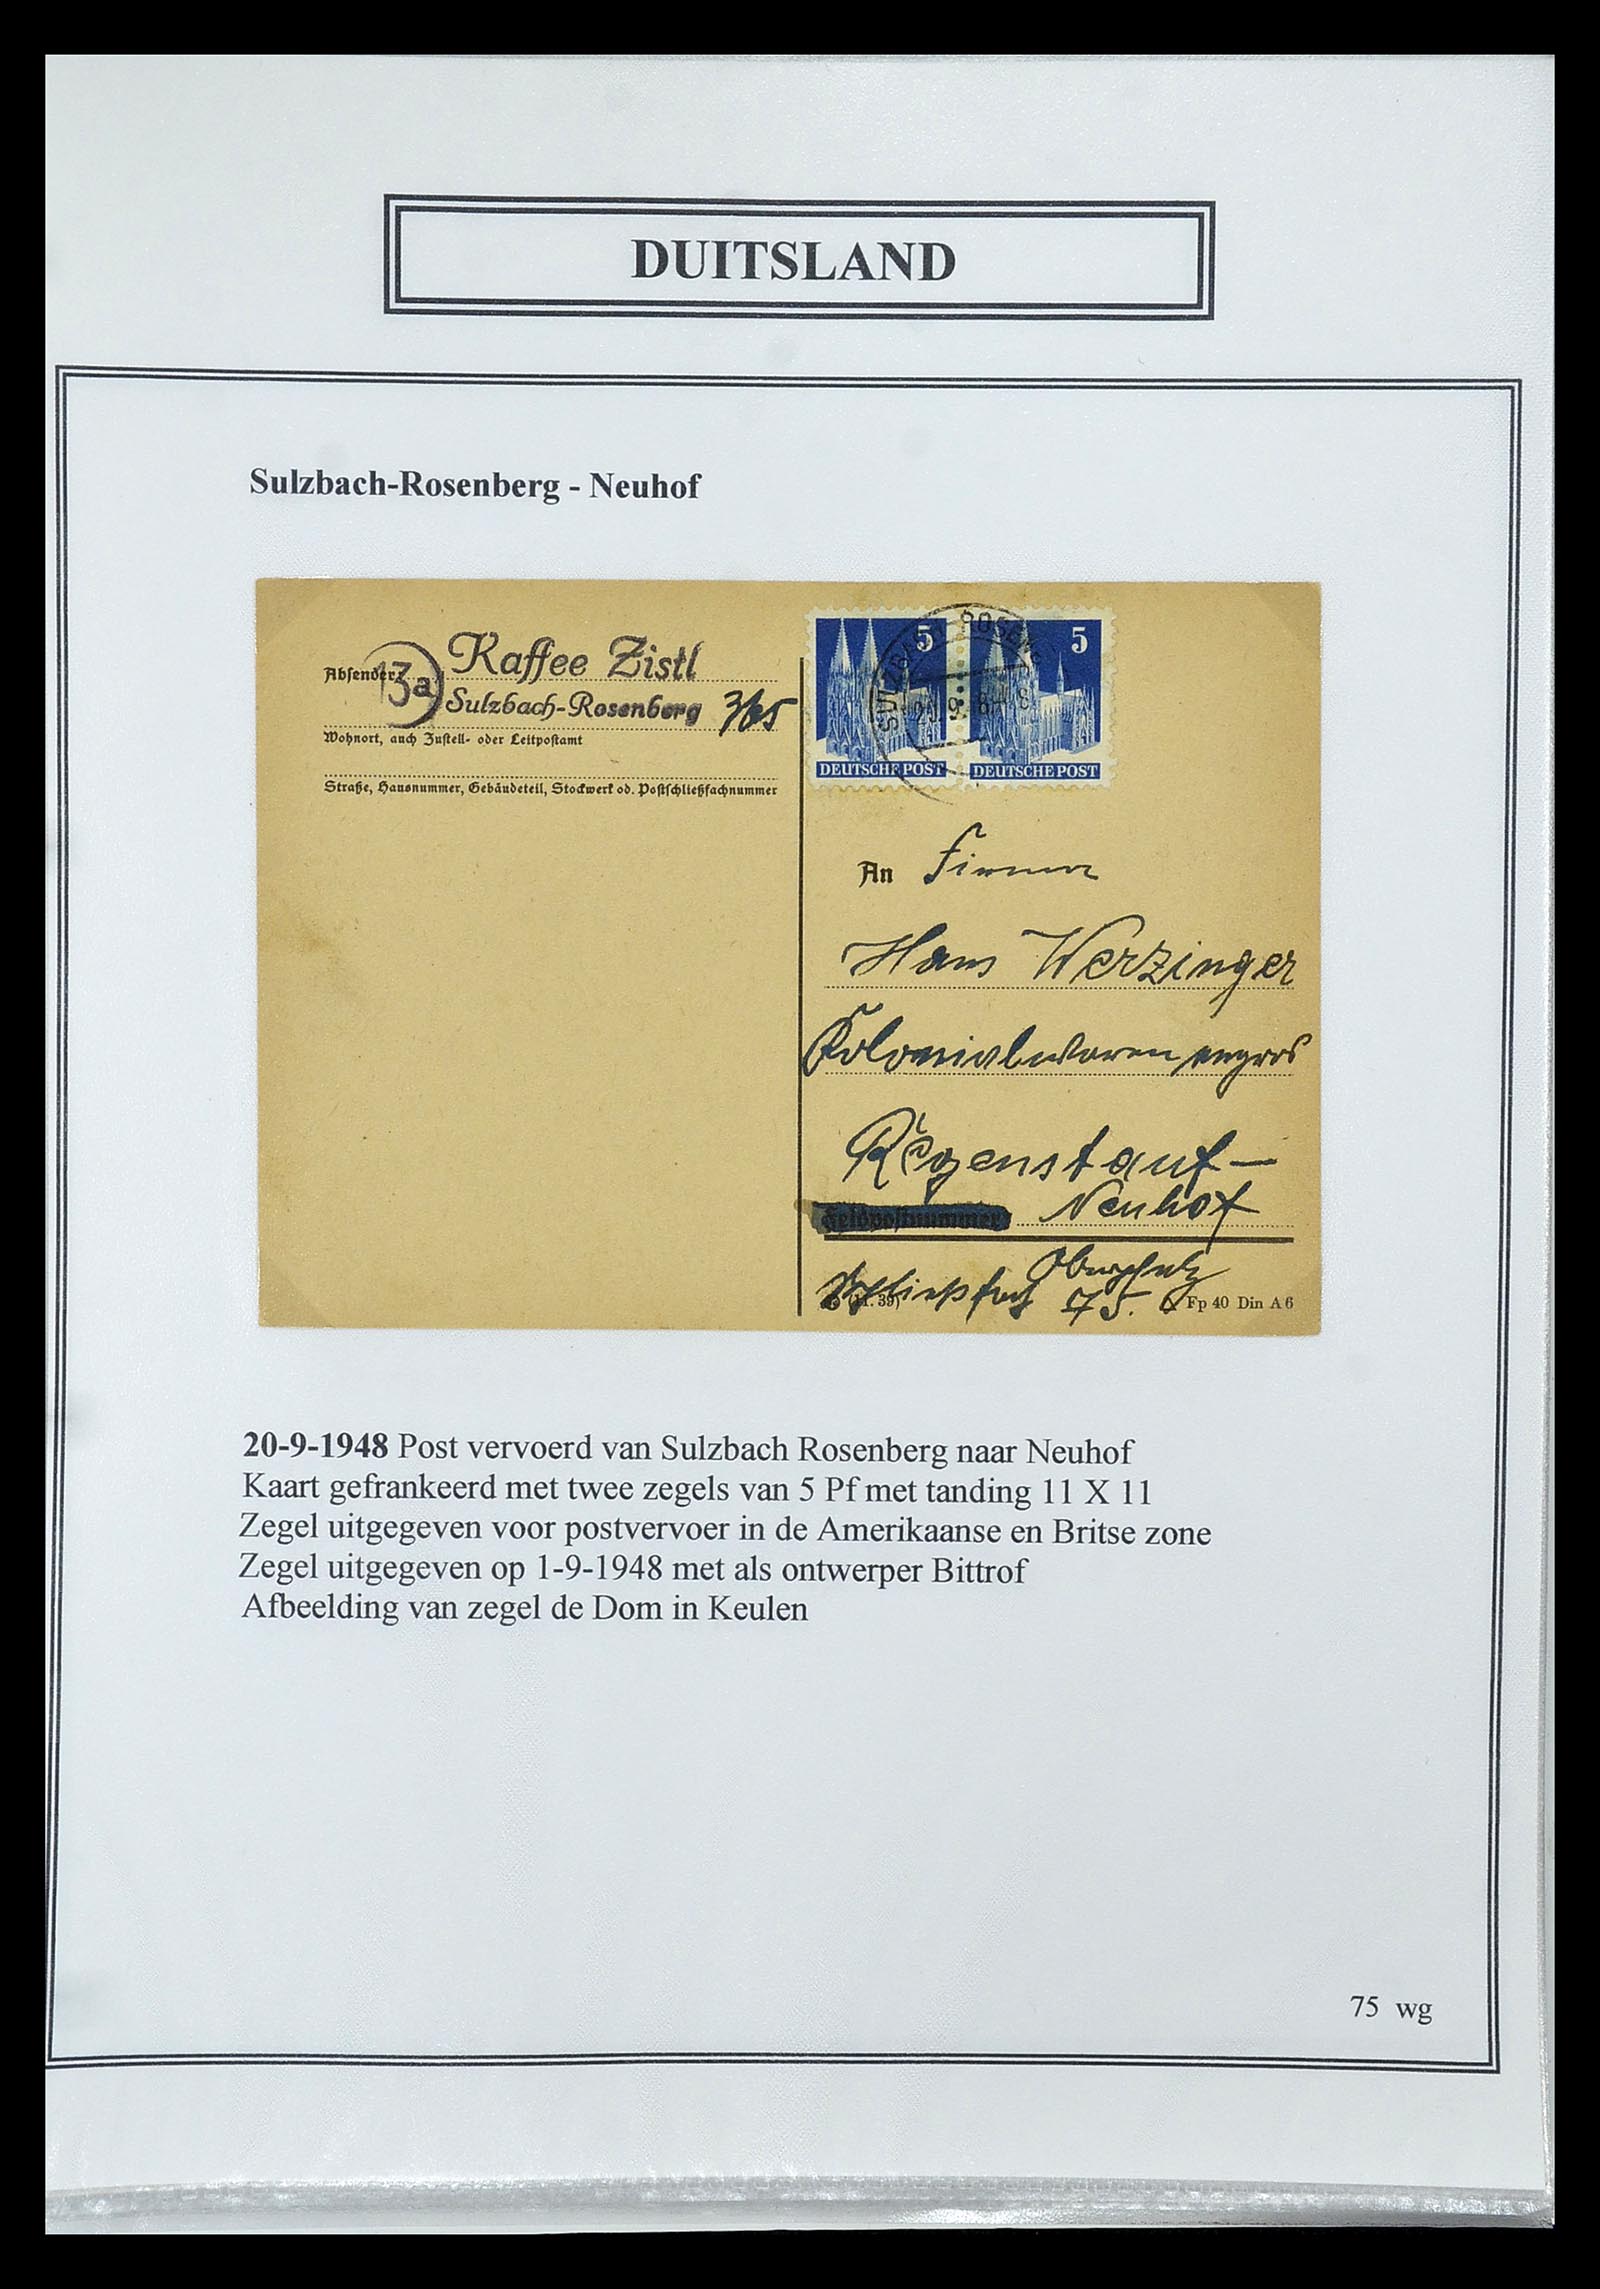 DUITSLAND
Sulzbach-Rosenberg - Neuhof
Absender:
13a
Kaffee Zistl
Sulzbach-Rosenberg 365
Wohnort, auch Zustell- oder Leitpostamt
Straße, Hausnummer, Gebäudeteil, Stockwerk od. Postschließfachnummer
5
5
SULZBACH ROSENB
20.9.48
DEUTSCHE POST
DEUTSCHE POST
An Firma
Hans Werzinger
Kolonialwaren engros
Regenstauf-
Feldpostnummer Neuhof
Oberpfalz
Schließfach 75.
(11. 39)
Fp 40 Din A 6
20-9-1948 Post vervoerd van Sulzbach Rosenberg naar Neuhof
Kaart gefrankeerd met twee zegels van 5 Pf met tanding 11 X 11
Zegel uitgegeven voor postvervoer in de Amerikaanse en Britse zone
Zegel uitgegeven op 1-9-1948 met als ontwerper Bittrof
Afbeelding van zegel de Dom in Keulen
75 wg